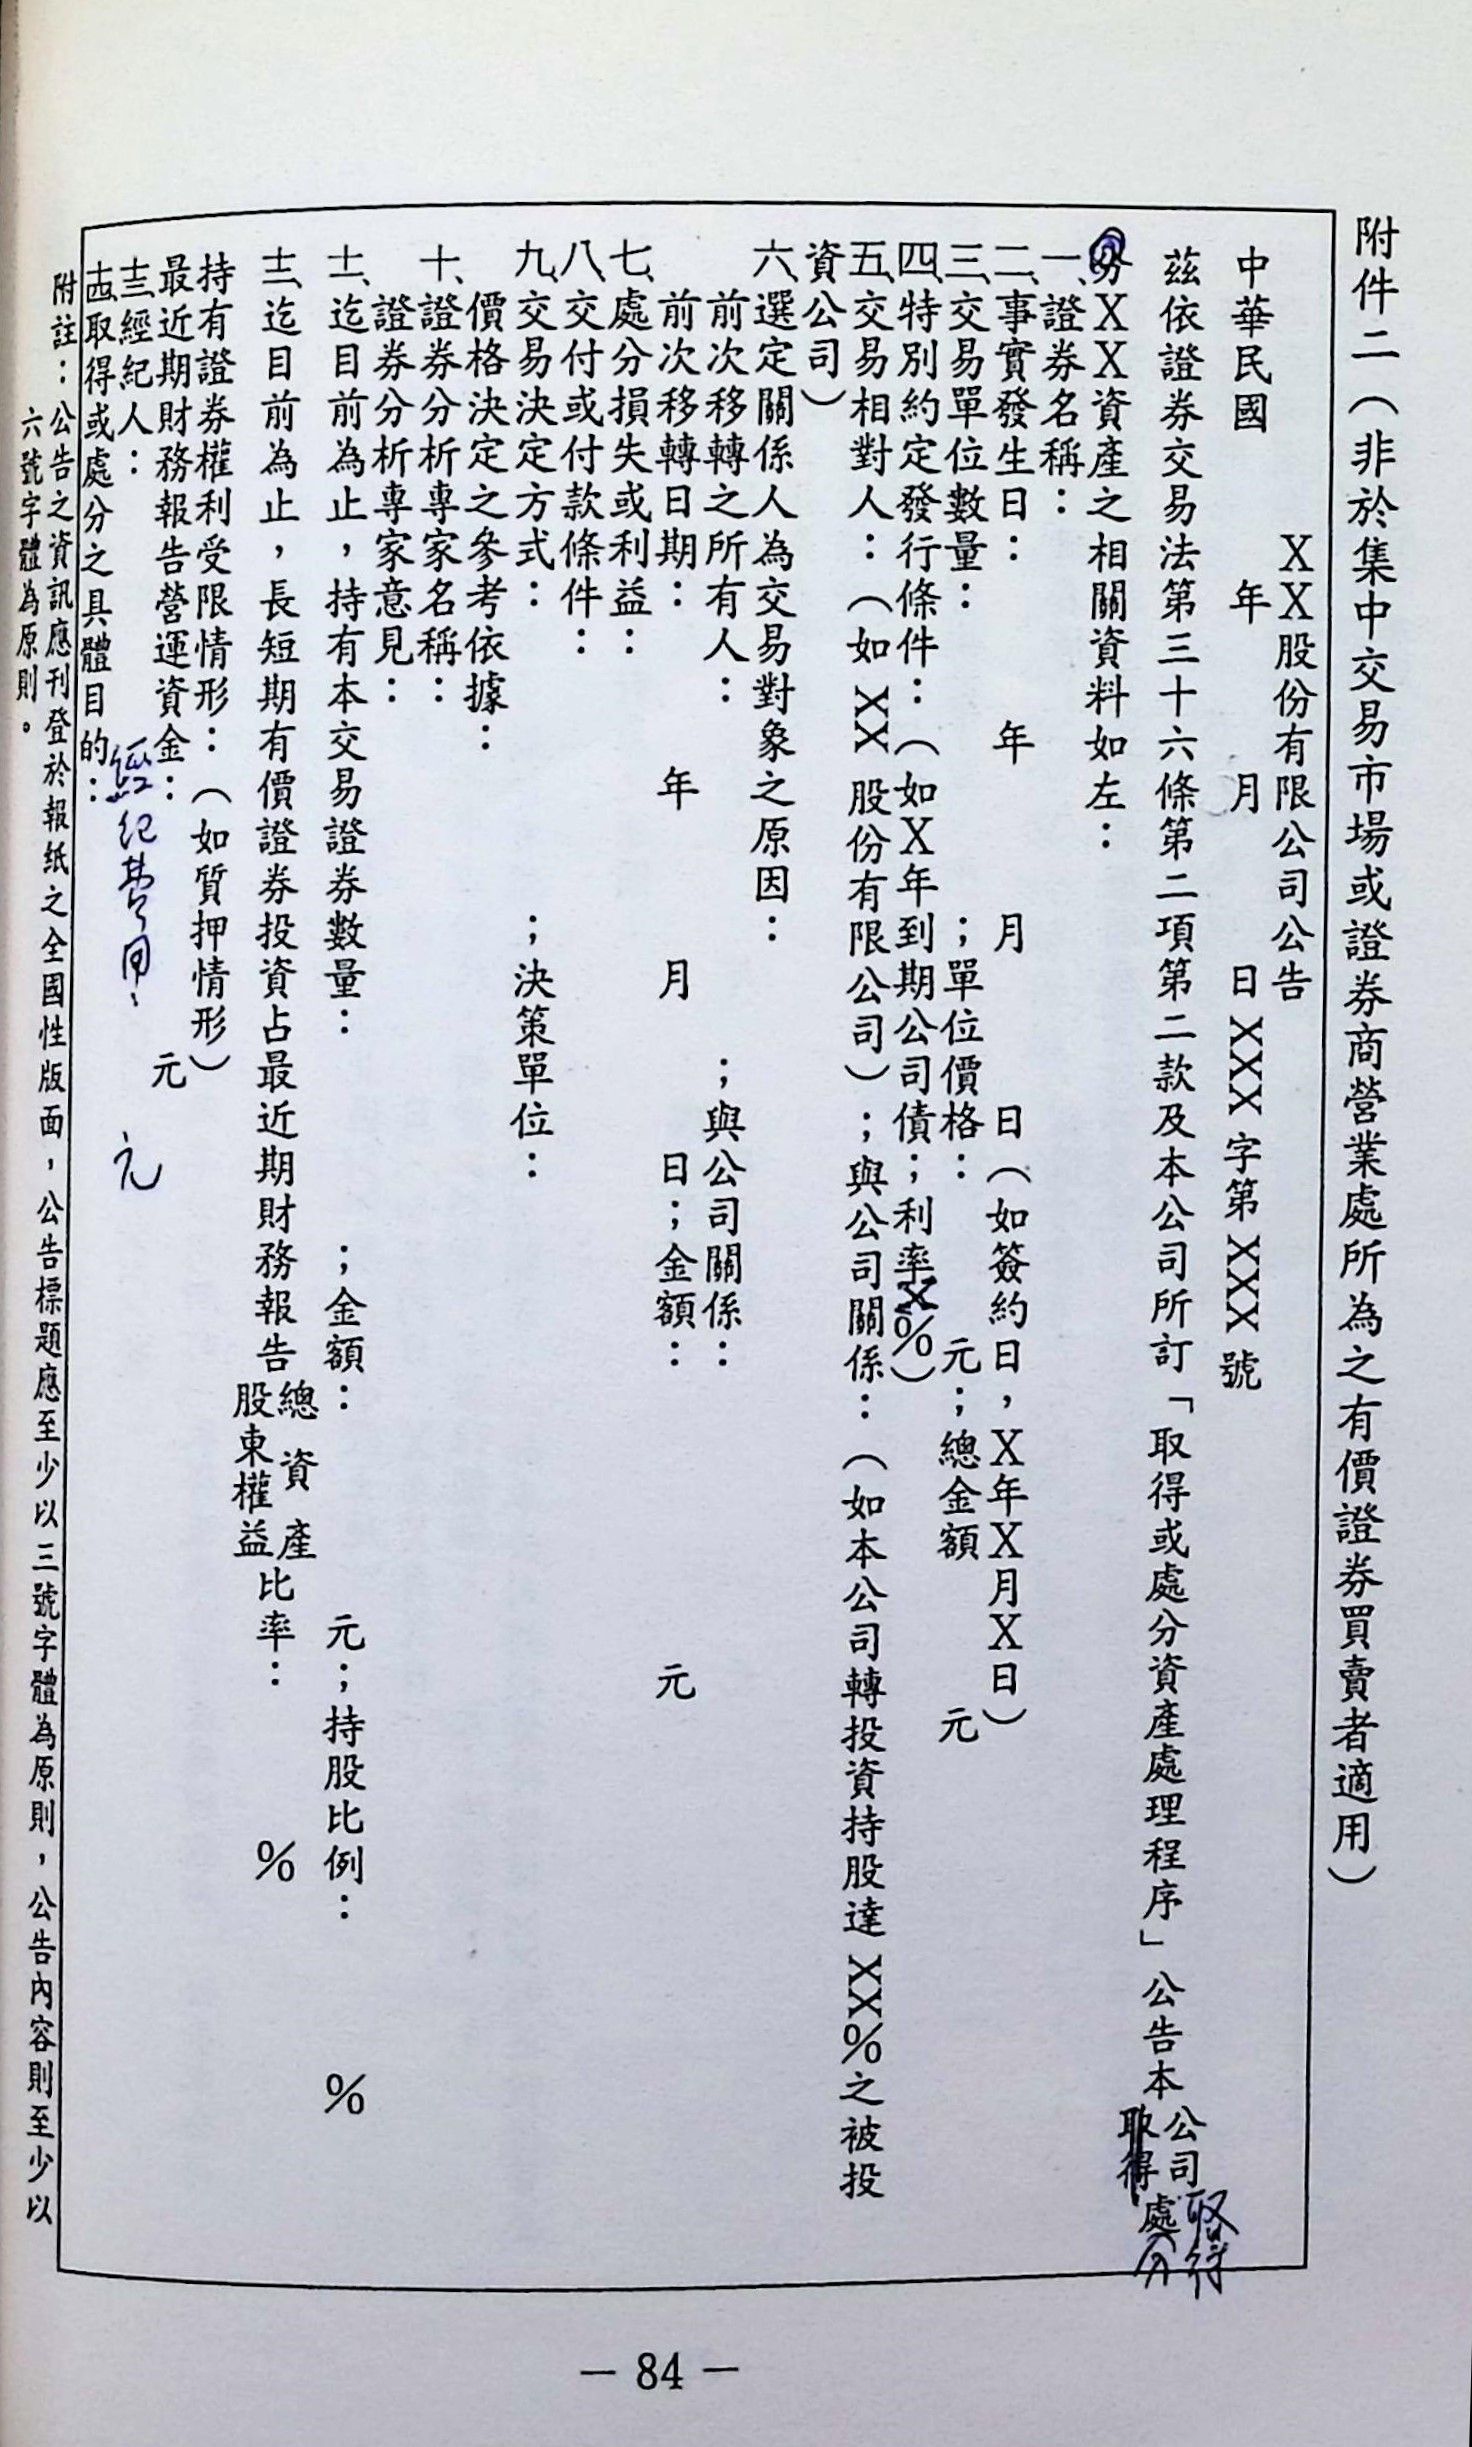 附件二（非於集中交易市場或證券商營業處所為之有價證券買賣者適用）
XX股份有限公司公告
中華民國　年　月　日XXX字第XXX號
茲依證券交易法第三十六條第二項第二款及本公司所訂「取得或處分資產處理程序」公告本公司取得
取得處分
分XX資產之相關資料如左：
一、證券名稱：
二、事實發生日：　年　月　日（如簽約日，X年X月X日）
三、交易單位數量：　；單位價格：　元；總金額　元
四、特別約定發行條件：（如X年到期公司債；利率X%）
五、交易相對人：（如XX股份有限公司）；與公司關係：（如本公司轉投資持股達XX%之被投
資公司）
六、選定關係人為交易對象之原因：
前次移轉之所有人：　；與公司關係：
前次移轉日期：　年　月　日；金額：　元
七、處分損失或利益：
八、交付或付款條件：
九、交易決定方式：　；決策單位：
價格決定之參考依據：
十、證券分析專家名稱：
證券分析專家意見：
十一、迄目前為止，持有本交易證券數量：　；金額：　元；持股比例：　%
十二、迄目前為止，長短期有價證券投資占最近期財務報告總資產
股東權益比率：　%
持有證券權利受限情形：（如質押情形）
最近期財務報告營運資金：　元
十三、經紀人：　經紀費用：　元
十四、取得或處分之具體目的：
附註：公告之資訊應刊登於報紙之全國性版面，公告標題應至少以三號字體為原則，公告內容則至少以
六號字體為原則。
— 84 —